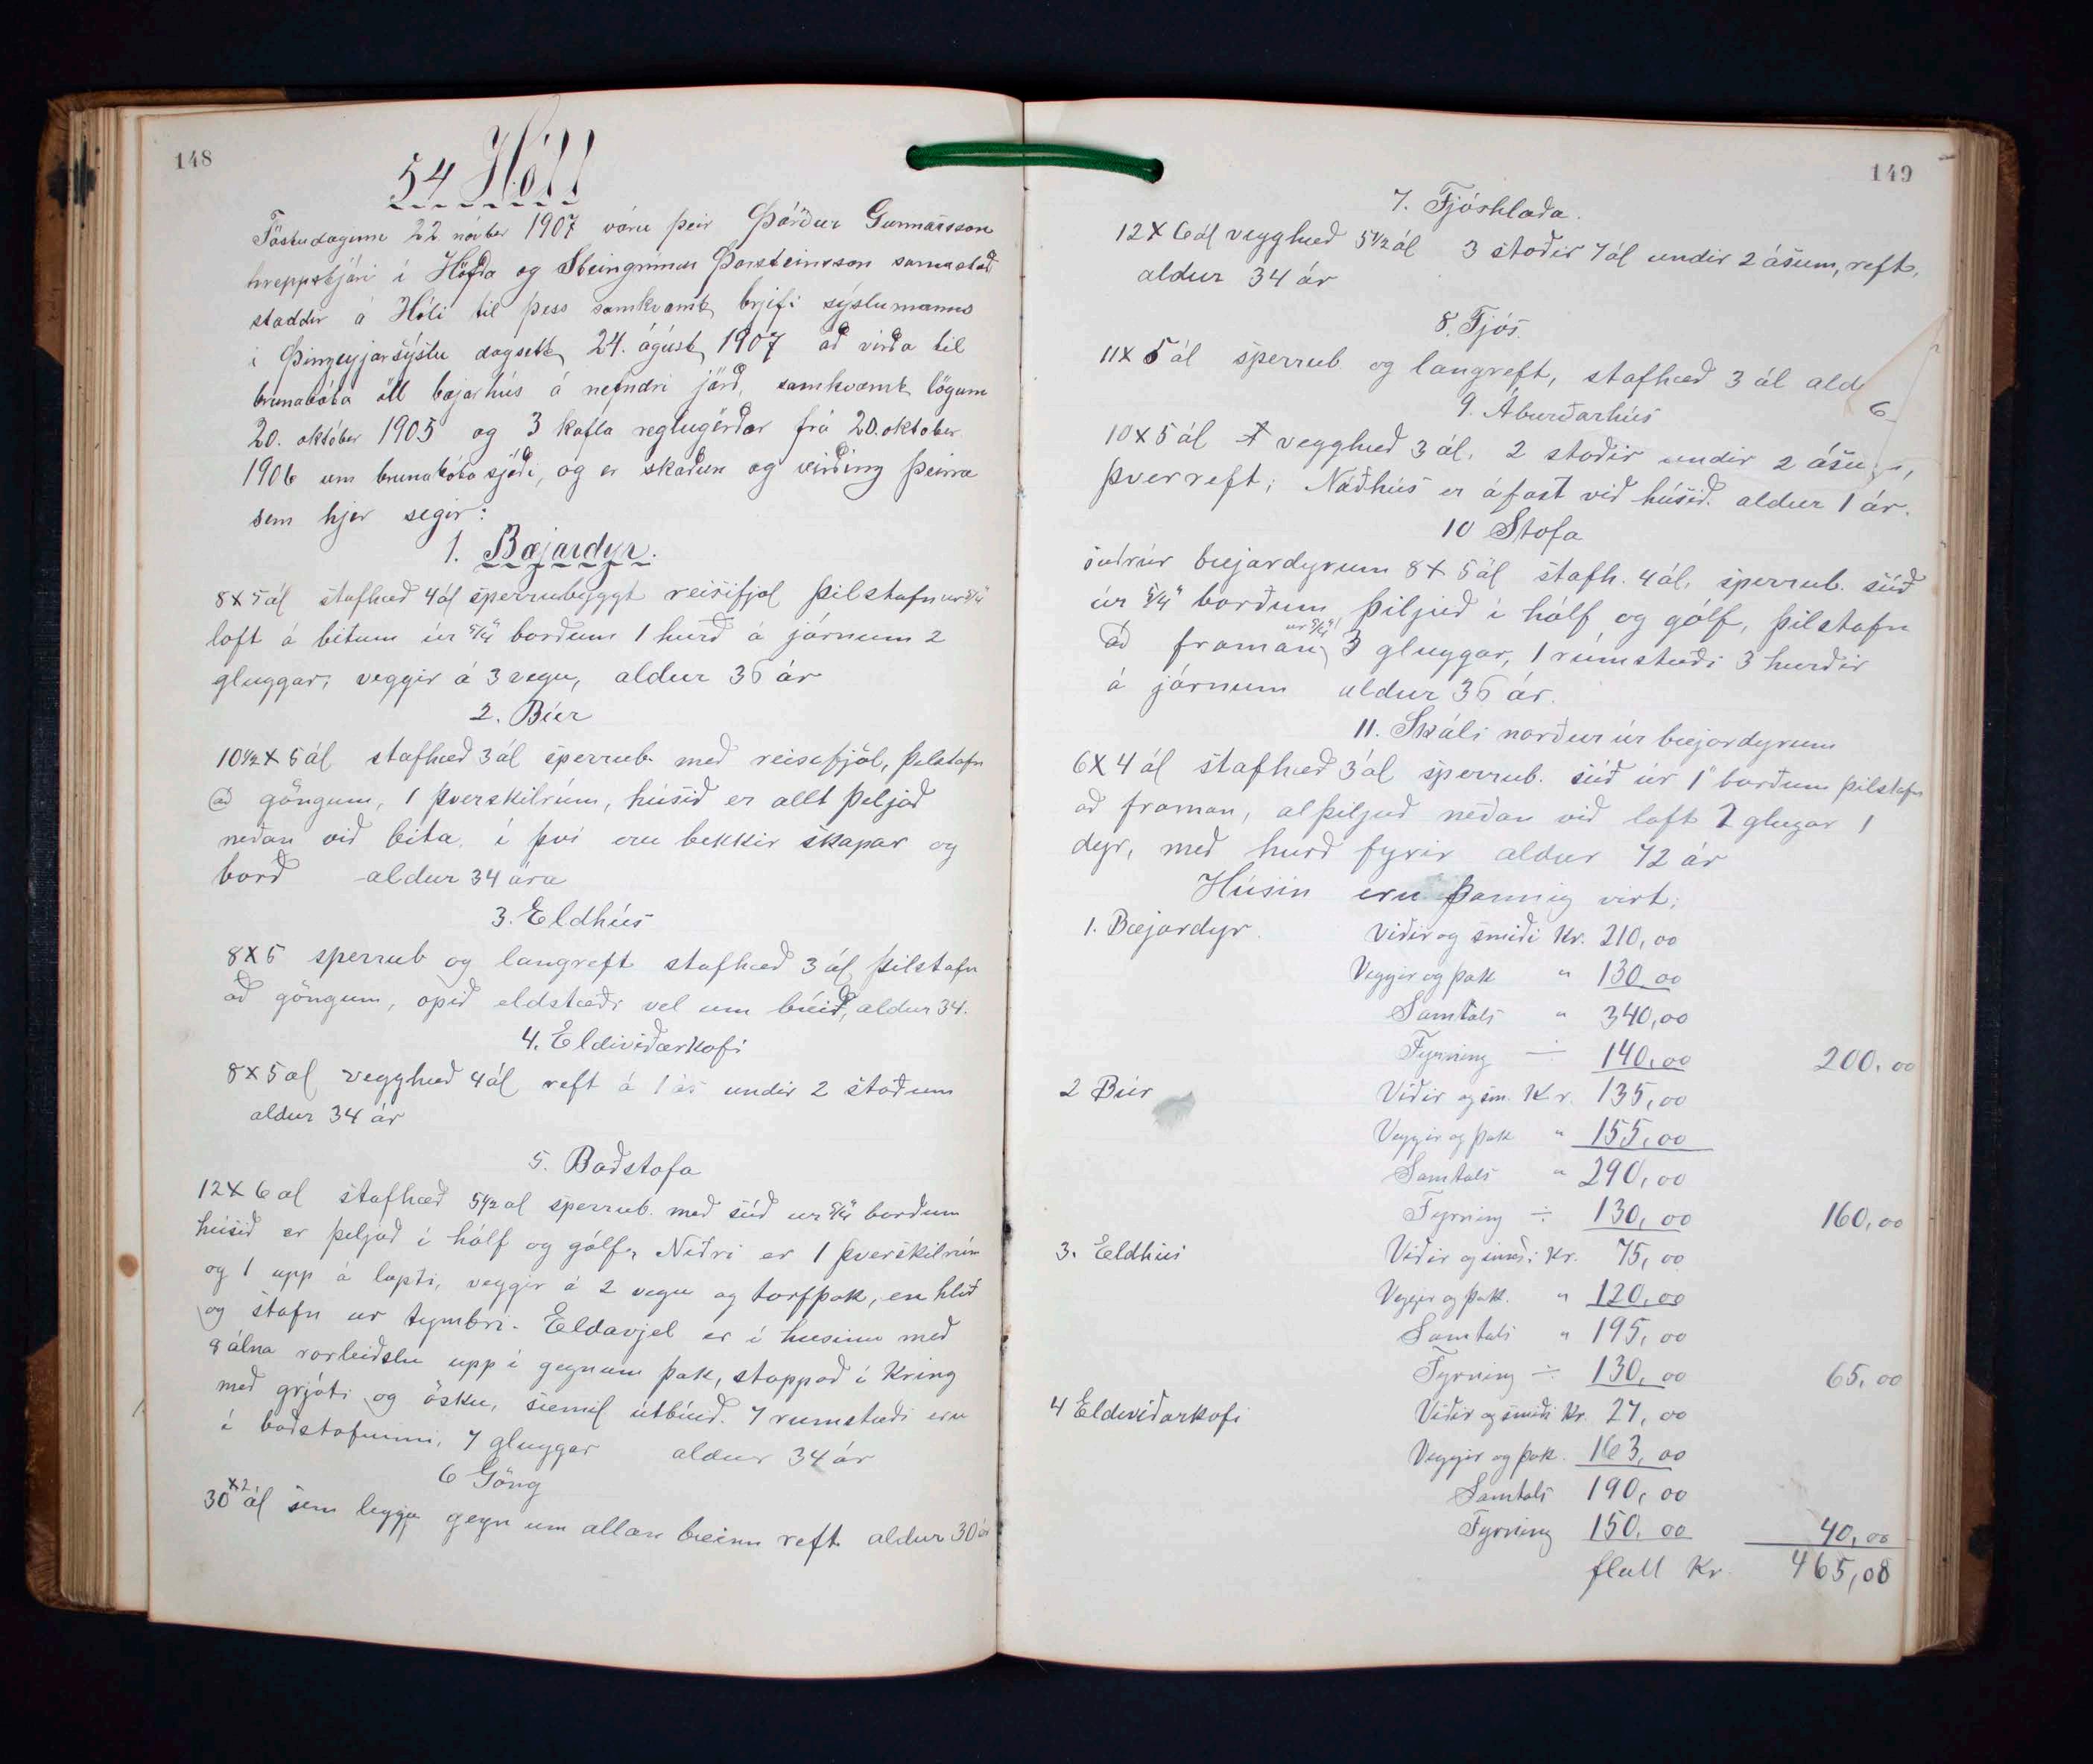 148
54 Hóll
Föstudaginn 22 nóvber 1907 vóru þeir Þórður Gunnarsson
hreppstjóri í Höfða og Steingrímur Þorsteinsson samastað
staddir á Hóli til þess samkvamt brjefi sýslumanns
i Þingeyjarsýslu dagsett 24. ágúst 1907 að virða til
brunabóta öll bæjarhús á nefndri jörð, samkvæmt lögum
20. október 1905 og 3 kafla reglugérðar frá 20. oktober
1906 um brunabótasjóði, og er skoðun og virðing þeirra
sem hjer segir:
1. Bæjardyr.
8x5ál stafhæð 4ál sperrubyggt reisifjöl þilstafn ur 5/4"
loft á bitum úr 5/4" borðum 1 hurð á járnum 2
gluggar; veggir á 3 vegu, aldur 36 ár
2. Búr
10 1/2 x 5 ál stafhæð 3 ál sperrub. með reisifjöl, þilstafn
að göngum, 1 þverskilrúm, húsið er allt þiljað
neðan við bita. í því eru bekkir skápar og
borð aldur 34 ára
3. Eldhús
8x5 sperrub og langreft stafhæð 3 ál þilstafn
að göngum, opið eldstæði vel um búið, aldur 34.
4. Eldiviðarkofi
8x5al vegghæð 4ál reft á 1 ás undir 2 stoðum
aldur 34 ár
5. Baðstofa
12x6 al stafhæð 5 1/2 al sperrub. með súð ur 5/4" borðum
húsið er þiljað í hólf og gólf. Niðri er 1 þverskilrúm
og 1 upp á lopti, veggir á 2 vegu og torfþak, en hlið
og stafn ur tymbri. Eldavjel er í husinu með
9 álna rorleiðslu upp í gegnum þak, stoppað í kring
með grjóti og ösku, siemil útbúið. 7 rumstæði eru
í baðstofunni, 7 gluggar aldur 34 ár
6 Göng
30x2 ál sem leggja gegn um allan bæinn reft aldur 30 ár
149
7. Fjóshlaða.
12x6ál vegghæð 5 1/2 ál 3 stoðir 7 ál undir 2 ásum, reft,
aldur 34 ár
8. Fjós.
11x5 ál sperrub og langreft, stafhæð 3 ál ald
6
9. Áburðarhús
10x5 ál vegghæð 3 ál, 2 stoðir undir 2 ásum,
þverreft; Náðhús er áfast við húsið. aldur 1 ár.
10 Stofa
suðrúr bæjardyrum 8x5ál stafh. 4ál. sperrub. súð
úr 5/4" borðum þiljuð í hólf og gólf, þilstafn
að framan úr 5/4" 3 gluggar, 1 rúmstæði 3 hurðir
á járnum aldur 36 ár.
11. Skáli norður úr bæjardyrum
6x4 ál stafhæð 3ál sperrub. súð úr 1" borðum þilstafn
að framan, alþiljuð neðan við loft 2 glugar 1
dyr, með hurð fyrir aldur 12 ár
Húsin eru þannig virt:
1. Bæjardyr. Viðir og smiði Kr. 210,00
Veggir og þak " 130,00
Samtals " 340,00
Fyrning ÷ 140,00 200,00
2 Búr Viðir og sm. Kr. 135,00
Veggir og þak " 155,00
Samtals " 290,00
Fyrning ÷ 130,00 160,00
3. Eldhús Viðir og smiði Kr. 75,00
Veggir og þak. " 120,00
Samtals " 195,00
Fyrning ÷ 130,00 65,00
4 Eldiviðarkofi Viðir og smiði Kr. 27,00
Veggir og þak. 163,00
Samtals 190,00
Fyrning 150,00 40,00
flutt Kr. 465,00